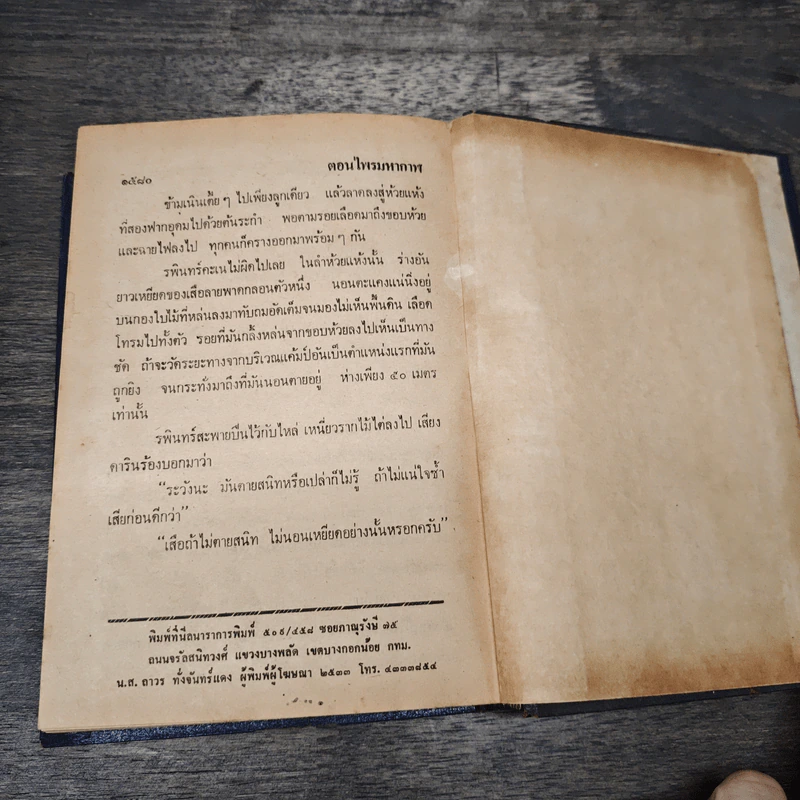 ๑๕๘๐
ตอนไพรมหากาฬ
ข้ามเนินเตี้ย ๆ ไปเพียงลูกเดียว แล้วลาดลงสู่ห้วยแห้ง
ที่สองฟากอุดมไปด้วยต้นระกำ พอตามรอยเลือดมาถึงขอบห้วย
และฉายไฟลงไป ทุกคนก็ครางออกมาพร้อม ๆ กัน
รพินทร์คะเนไม่ผิดไปเลย ในลำห้วยแห้งนั้น ร่างอัน
ยาวเหยียดของเสือลายพาดกลอนตัวหนึ่ง นอนตะแคงแน่นิ่งอยู่
บนกองใบไม้ที่หล่นลงมาทับถมอัดเต็มจนมองไม่เห็นพื้นดิน เลือด
โทรมไปทั้งตัว รอยที่มันกลิ้งหล่นจากขอบห้วยลงไปเห็นเป็นทาง
ชัด ถ้าจะวัดระยะทางจากบริเวณแค้มป์อันเป็นตำแหน่งแรกที่มัน
ถูกยิง จนกระทั่งมาถึงที่มันนอนตายอยู่ ห่างเพียง ๕๐ เมตร
เท่านั้น
รพินทร์สะพายปืนไว้กับไหล่ เหนี่ยวรากไม้ไต่ลงไป เสียง
ดารินร้องบอกมาว่า
“ระวังนะ มันตายสนิทหรือเปล่าก็ไม่รู้ ถ้าไม่แน่ใจซ้ำ
เสียก่อนดีกว่า”
“เสือถ้าไม่ตายสนิท ไม่นอนเหยียดอย่างนั้นหรอกครับ”
พิมพ์ที่นีลนาราการพิมพ์ ๕๐๙/๔๕๘ ซอยภาณุรังษี ๗๕
ถนนจรัลสนิทวงศ์ แขวงบางพลัด เขตบางกอกน้อย กทม.
น.ส. ถาวร ทั่งจันทร์แดง ผู้พิมพ์ผู้โฆษณา ๒๕๓๓ โทร. ๔๓๓๓๘๕๔